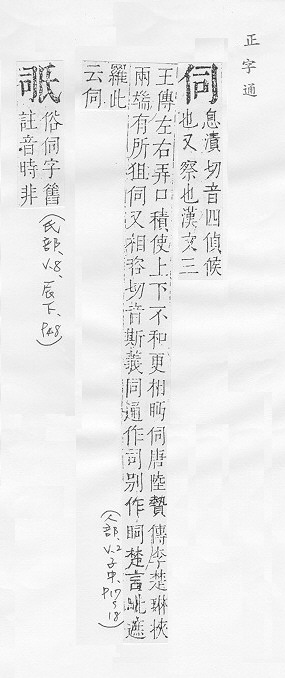 正字通
伺
息漬切音四偵候
也又察也漢文三
王傳左右弄口積使上下不和更相眄伺唐陸贄傳李楚琳挾
兩端有所狙伺又相咨切音斯義同通作司別作 楚言 遮
羅此
云伺
(人部、v.2 子中、p.17,18)
俗伺字舊
註音時非
(氏部、v.8、辰下、p.48)